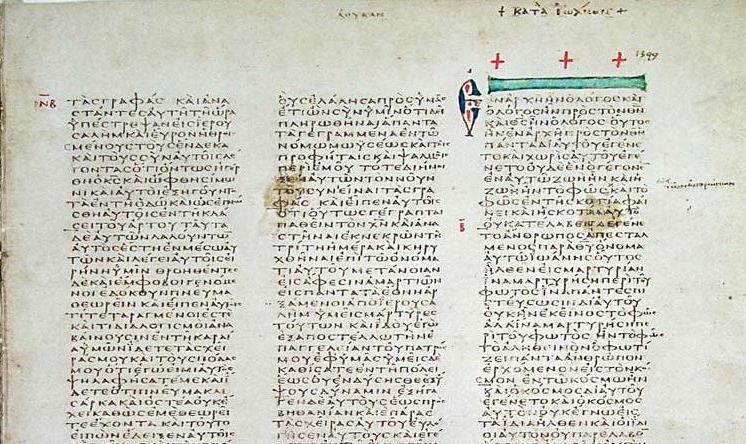 ΛΟΥΚΑΝ
+ ΚΑΤΑ ΙΩΑΝΝΗΝ +
1349
ΝΒ
ΤΑϹΓΡΑΦΑϹ ΚΑΙΑΝΑ
ϹΤΑΝΤΕϹΑΥΤΗΤΗΩΡΑ
ΥΠΕϹΤΡΕΨΑΝΕΙϹΙΕΡΟΥ
ϹΑΛΗΜΚΑΙΕΥΡΟΝΗΘΡΟΙ
ϹΜΕΝΟΥϹΤΟΥϹΕΝΔΕΚΑ
ΚΑΙΤΟΥϹϹΥΝΑΥΤΟΙϹΛΕ
ΓΟΝΤΑϹΟΤΙΟΝΤΩϹΗΓΕΡ
ΘΗΟΚϹΚΑΙΩΦΘΗϹΙΜΩ
ΝΙΚΑΙΑΥΤΟΙΕΞΗΓΟΥΝΤΟ
ΤΑΕΝΤΗΟΔΩΚΑΙΩϹΕΓΝΩ
ϹΘΗΑΥΤΟΙϹΕΝΤΗΚΛΑ
ϹΕΙΤΟΥΑΡΤΟΥΤΑΥΤΑ
ΔΕΑΥΤΩΝΛΑΛΟΥΝΤΩΝ
ΑΥΤΟϹΕϹΤΗΕΝΜΕϹΩΑΥ
ΤΩΝΚΑΙΛΕΓΕΙΑΥΤΟΙϹΕΙ
ΡΗΝΗΥΜΙΝ ΘΡΟΗΘΕΝΤΕϹ
ΔΕΚΑΙΕΜΦΟΒΟΙΓΕΝΟΜΕ
ΝΟΙΕΔΟΚΟΥΝΠΝΕΥΜΑ
ΘΕΩΡΕΙΝ ΚΑΙΕΙΠΕΝΑΥΤΟΙϹ
ΤΙΤΕΤΑΡΑΓΜΕΝΟΙΕϹΤΕ
ΚΑΙΤΙΔΙΑΛΟΓΙϹΜΟΙΑΝΑ
ΒΑΙΝΟΥϹΙΝΕΝΤΗΚΑΡΔΙΑ
ΥΜΩΝΙΔΕΤΕΤΑϹΧΕΙ
ΡΑϹΜΟΥΚΑΙΤΟΥϹΠΟΔΑϹ
ΜΟΥΟΤΙΕΓΩΕΙΜΙΑΥΤΟϹ
ΨΗΛΑΦΗϹΑΤΕΜΕΚΑΙΙ
ΔΕΤΕΟΤΙΠΝΕΥΜΑΚΑΙ
ϹΑΡΚΑΚΑΙΟϹΤΕΑΟΥΚΕ
ΧΕΙΚΑΘΩϹΕΜΕΘΕΩΡΕΙ
ΤΕΕΧΟΝΤΑ ΚΑΙΤΟΥΤΟ
ΕΙΠΩΝΕΔΕΙΞΕΝΑΥΤΟΙϹ
ΟΥϹΕΛΑΛΗϹΑΠΡΟϹΥΜΑϹ
ΕΤΙΩΝϹΥΝΥΜΙΝΟΤΙΔΕΙ
ΠΛΗΡΩΘΗΝΑΙΠΑΝΤΑ
ΤΑΓΕΓΡΑΜΜΕΝΑΕΝΤΩ
ΝΟΜΩΜΩΥϹΕΩϹΚΑΙΤΟΙϹ
ΠΡΟΦΗΤΑΙϹΚΑΙΨΑΛΜΟΙϹ
ΠΕΡΙΕΜΟΥ ΤΟΤΕΔΙΗΝΟΙ
ΞΕΝΑΥΤΩΝΤΟΝΝΟΥΝ
ΤΟΥϹΥΝΕΙΝΑΙΤΑϹΓΡΑ
ΦΑϹ ΚΑΙΕΙΠΕΝΑΥΤΟΙϹ
ΟΤΙΟΥΤΩϹΓΕΓΡΑΠΤΑΙ
ΠΑΘΕΙΝΤΟΝΧΝΚΑΙΑΝΑ
ϹΤΗΝΑΙΕΚΝΕΚΡΩΝΤΗ
ΤΡΙΤΗΗΜΕΡΑΚΑΙΚΗΡΥ
ΧΘΗΝΑΙΕΠΙΤΩΟΝΟΜΑ
ΤΙΑΥΤΟΥΜΕΤΑΝΟΙΑΝ
ΕΙϹΑΦΕϹΙΝΑΜΑΡΤΙΩΝ
ΕΙϹΠΑΝΤΑΤΑΕΘΝΗΑΡ
ΞΑΜΕΝΟΙΑΠΟΙΕΡΟΥϹΑ
ΛΗΜΥΜΕΙϹΜΑΡΤΥΡΕϹ
ΤΟΥΤΩΝ ΚΑΙΙΔΟΥΕΓΩ
ΕΞΑΠΟϹΤΕΛΛΩΤΗΝΕ
ΠΑΓΓΕΛΙΑΝΤΟΥΠΑΤΡΟϹ
ΜΟΥΕΦΥΜΑϹΥΜΕΙϹΔΕ
ΚΑΘΙϹΑΤΕΕΝΤΗΠΟΛΕΙ
ΕΩϹΟΥΕΝΔΥϹΗϹΘΕΕΞΥ
ΨΟΥϹΔΥΝΑΜΙΝ ΕΞΗΓΑ
ΓΕΝΔΕΑΥΤΟΥϹΕΩϹΠΡΟϹ
ΒΗΘΑΝΙΑΝΚΑΙΕΠΑΡΑϹ
ΤΑϹΧΕΙΡΑϹΑΥΤΟΥΕΥΛΟ
ΓΗϹΕΝΑΥΤΟΥϹΚΑΙΕΓΕ
ΕΝΑΡΧΗΗΝΟΛΟΓΟϹΚΑΙ
ΟΛΟΓΟϹΗΝΠΡΟϹΤΟΝΘΝ
ΚΑΙΘϹΗΝΟΛΟΓΟϹ ΟΥΤΟϹ
ΗΝΕΝΑΡΧΗΠΡΟϹΤΟΝΘΝ
ΠΑΝΤΑΔΙΑΥΤΟΥΕΓΕΝΕ
ΤΟΚΑΙΧΩΡΙϹΑΥΤΟΥΕΓΕ
ΝΕΤΟΟΥΔΕΕΝΟΓΕΓΟΝΕΝ
ΕΝΑΥΤΩΖΩΗΗΝΚΑΙΗ
ΖΩΗΗΝΤΟΦΩϹΚΑΙΤΟ
ΦΩϹΕΝΤΗϹΚΟΤΙΑΦΑΙ
ΝΕΙΚΑΙΗϹΚΟΤΙΑΑΥΤΟ
ΟΥΚΑΤΕΛΑΒΕΝ ΕΓΕΝΕ
ΤΟΑΝΘΡΩΠΟϹΑΠΕϹΤΑΛ
ΜΕΝΟϹΠΑΡΑΘΥΟΝΟΜΑ
ΑΥΤΩΙΩΑΝΗϹΟΥΤΟϹ
ΗΛΘΕΝΕΙϹΜΑΡΤΥΡΙΑΝ
ΙΝΑΜΑΡΤΥΡΗϹΗΠΕΡΙΤΟΥ
ΦΩΤΟϹΙΝΑΠΑΝΤΕϹΠΙ
ϹΤΕΥϹΩϹΙΝΔΙΑΥΤΟΥ
ΟΥΚΗΝΕΚΕΙΝΟϹΤΟΦΩϹ
ΑΛΛΙΝΑΜΑΡΤΥΡΗϹΗΠΕ
ΡΙΤΟΥΦΩΤΟϹ ΗΝΤΟΦΩϹ
ΤΟΑΛΗΘΙΝΟΝΟΦΩΤΙ
ΖΕΙΠΑΝΤΑΑΝΘΡΩΠΟΝ
ΕΡΧΟΜΕΝΟΝΕΙϹΤΟΝΚΟ
ϹΜΟΝ ΕΝΤΩΚΟϹΜΩΗΝ
ΚΑΙΟΚΟϹΜΟϹΔΙΑΥΤΟΥ
ΕΓΕΝΕΤΟΚΑΙΟΚΟϹΜΟϹ
ΑΥΤΟΝΟΥΚΕΓΝΩΕΙϹ
ΤΑΙΔΙΑΗΛΘΕΝΚΑΙΟΙΙΔΙ
ΟΙΑΥΤΟΝΟΥΠΑΡΕΛΑΒΟΝ